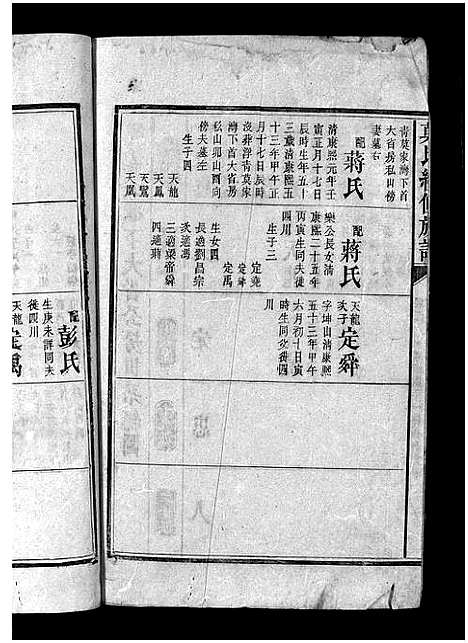 青莫家灣下首
大省房私山傍
妻墓右
配 蔣氏
清康熙元年壬
寅正月十七日
辰時生年五十
三歲清康熙五
十三年甲午正
月十七日辰時
沒葬淨青莫家
灣下首大省房
私山卯山酉向
傍夫墓左
生子四
天龍
天鳳
天鸞
天鳳
配 蔣氏
樂公長女清
康熙二十五年
丙寅生同夫徙
四川
生子三
定堯
定舜
定禹
生女四
長適劉昌宗
次適馮
三適梁帝舜
四適龔
天龍
次子 定舜
字坤山清康熙
五十三年甲午
六月初十日寅
時生同父徙四
川
天龍 定禹
配 彭氏
生庚未詳同夫
徙四川